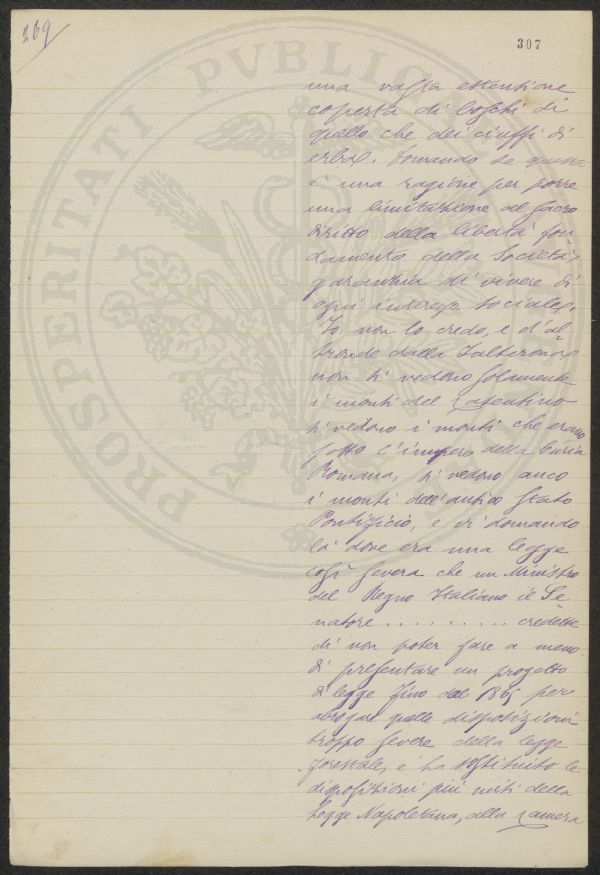 269
307
PROSPERITATI PVBLICAE
una vasta estensione
coperta di boschi di
quello che dei ciuffi di
erba. Domando se questa
è una ragione per porre
una limitazione al sacro
diritto della libertà fon-
damento della Società,
garanzia di vivere di
ogni interesse sociale.
Io non lo credo, e d'al-
tronde dalla Falterona
non si vedono solamente
i monti del Casentino
si vedono i monti che erano
sotto l'impero della Curia
Romana, si vedono anco
i monti dell'antico Stato
Pontificio, e vi domando
là dove era una legge
così severa che un Ministro
del Regno Italiano il Se-
natore .......... credette
di non poter fare a meno
di presentare un progetto
di legge fino dal 1865 per
abrogare quelle disposizioni
troppo severe della legge
forestale, e ha sostituito le
disposizioni più miti della
legge Napoletana, alla Camera